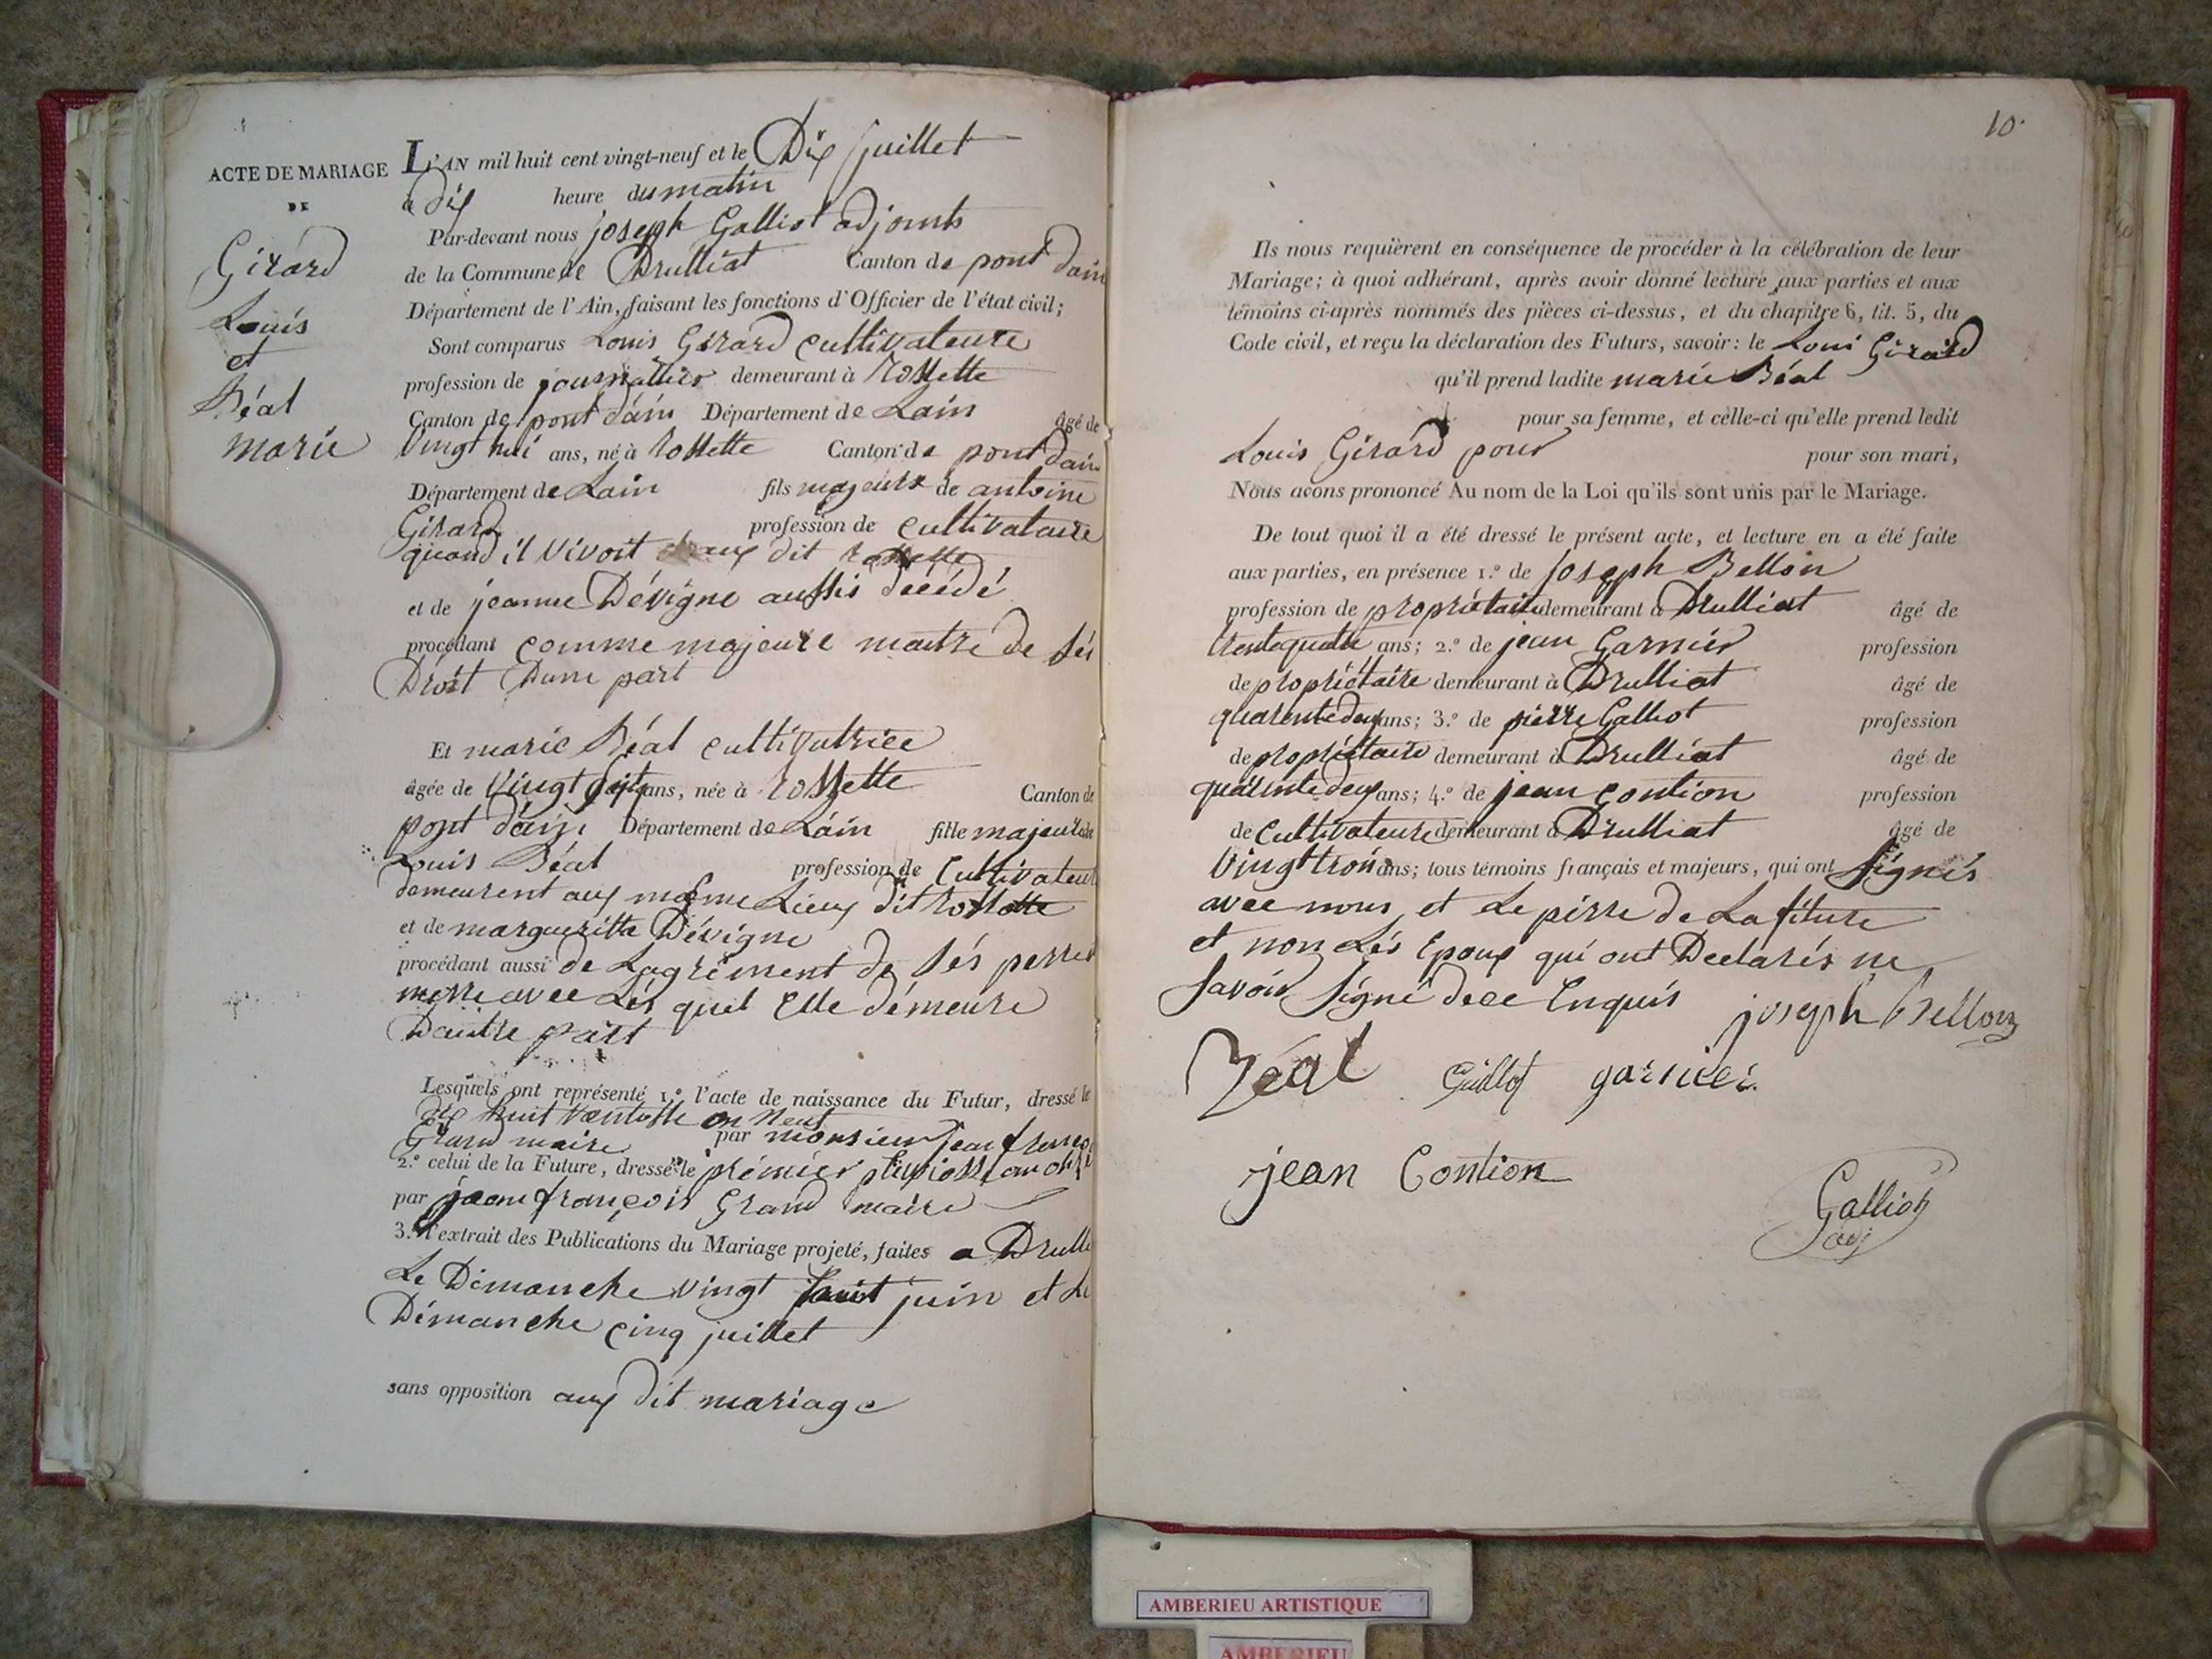 ACTE DE MARIAGE
DE
Girard
Louis
et
Béal
marie
L'AN mil huit cent vingt-neuf et le Dix juillet
a dix heure du matin
Par-devant nous joseph Galliot adjoints
de la Commune de Drulliat Canton de pont dain
Département de l'Ain, faisant les fonctions d'Officier de l'état civil;
Sont comparus Louis Girard cultivateure
profession de journallier demeurant à rossette
Canton de pont d'ain Département de Lain âgé de
Vingt neu ans, né à rossette Canton de pont dain
Département de Lain fils majeure de antoine
Girard profession de cultivataure
quand il vivoit aux dit rossette
et de jeanne Dévigne aussis décédé
procédant comme majeure maitre de sés
Droit Dune part
Et marie Béal cultivatrice
âgée de Vingt sept ans, née à rossette Canton de
pont dain Département de Lain fille majeure de
Louis Béal profession de Cultivateur
demeurent aux mesme Lieux dit rossette
et de margueritte Dévigne
procédant aussi de Lagrément de sés perre
merre avec Les quel Elle démeure
Dautre part
Lesquels ont représenté 1.º l'acte de naissance du Futur, dressé le
dix huit ventosse an neuf
Grand maire par monsieur jean franço
2.º celui de la Future, dressé le prémier pluviosse an onze
par jean françois Grand maire
3.º l'extrait des Publications du Mariage projeté, faites a Drulli
Le Dimanche vingt huit juin et Le
Dimanche cinq juillet
sans opposition aux dit mariage
10.
Ils nous requièrent en conséquence de procéder à la célébration de leur
Mariage; à quoi adhérant, après avoir donné lecture aux parties et aux
témoins ci-après nommés des pièces ci-dessus, et du chapitre 6, tit. 5, du
Code civil, et reçu la déclaration des Futurs, savoir: le Loui Girard
qu'il prend ladite marie Béal
pour sa femme, et celle-ci qu'elle prend ledit
Louis Girard pour pour son mari,
Nous avons prononcé Au nom de la Loi qu'ils sont unis par le Mariage.
De tout quoi il a été dressé le présent acte, et lecture en a été faite
aux parties, en présence 1.º de Joseph Bellon
profession de propriétaire demeurant à Drulliat âgé de
trente quatre ans; 2.º de jean Garnier profession
de propriétaire demeurant à Drulliat âgé de
quarente deux ans; 3.º de pierre Galliot profession
de propriétaire demeurant à Drulliat âgé de
quarente deux ans; 4.º de jean Contion profession
de Cultivateure demeurant à Drulliat âgé de
Vingt trois ans; tous témoins français et majeurs, qui ont signés
avec nous et Le pérre de La fiture
et non Lés Epoux qui ont Declarés ne
savoir signé de ce Enquis joseph Bellon
Béal Galliot garnier
jean Contion
Galliot
adj
AMBERIEU ARTISTIQUE
AMBERIEU